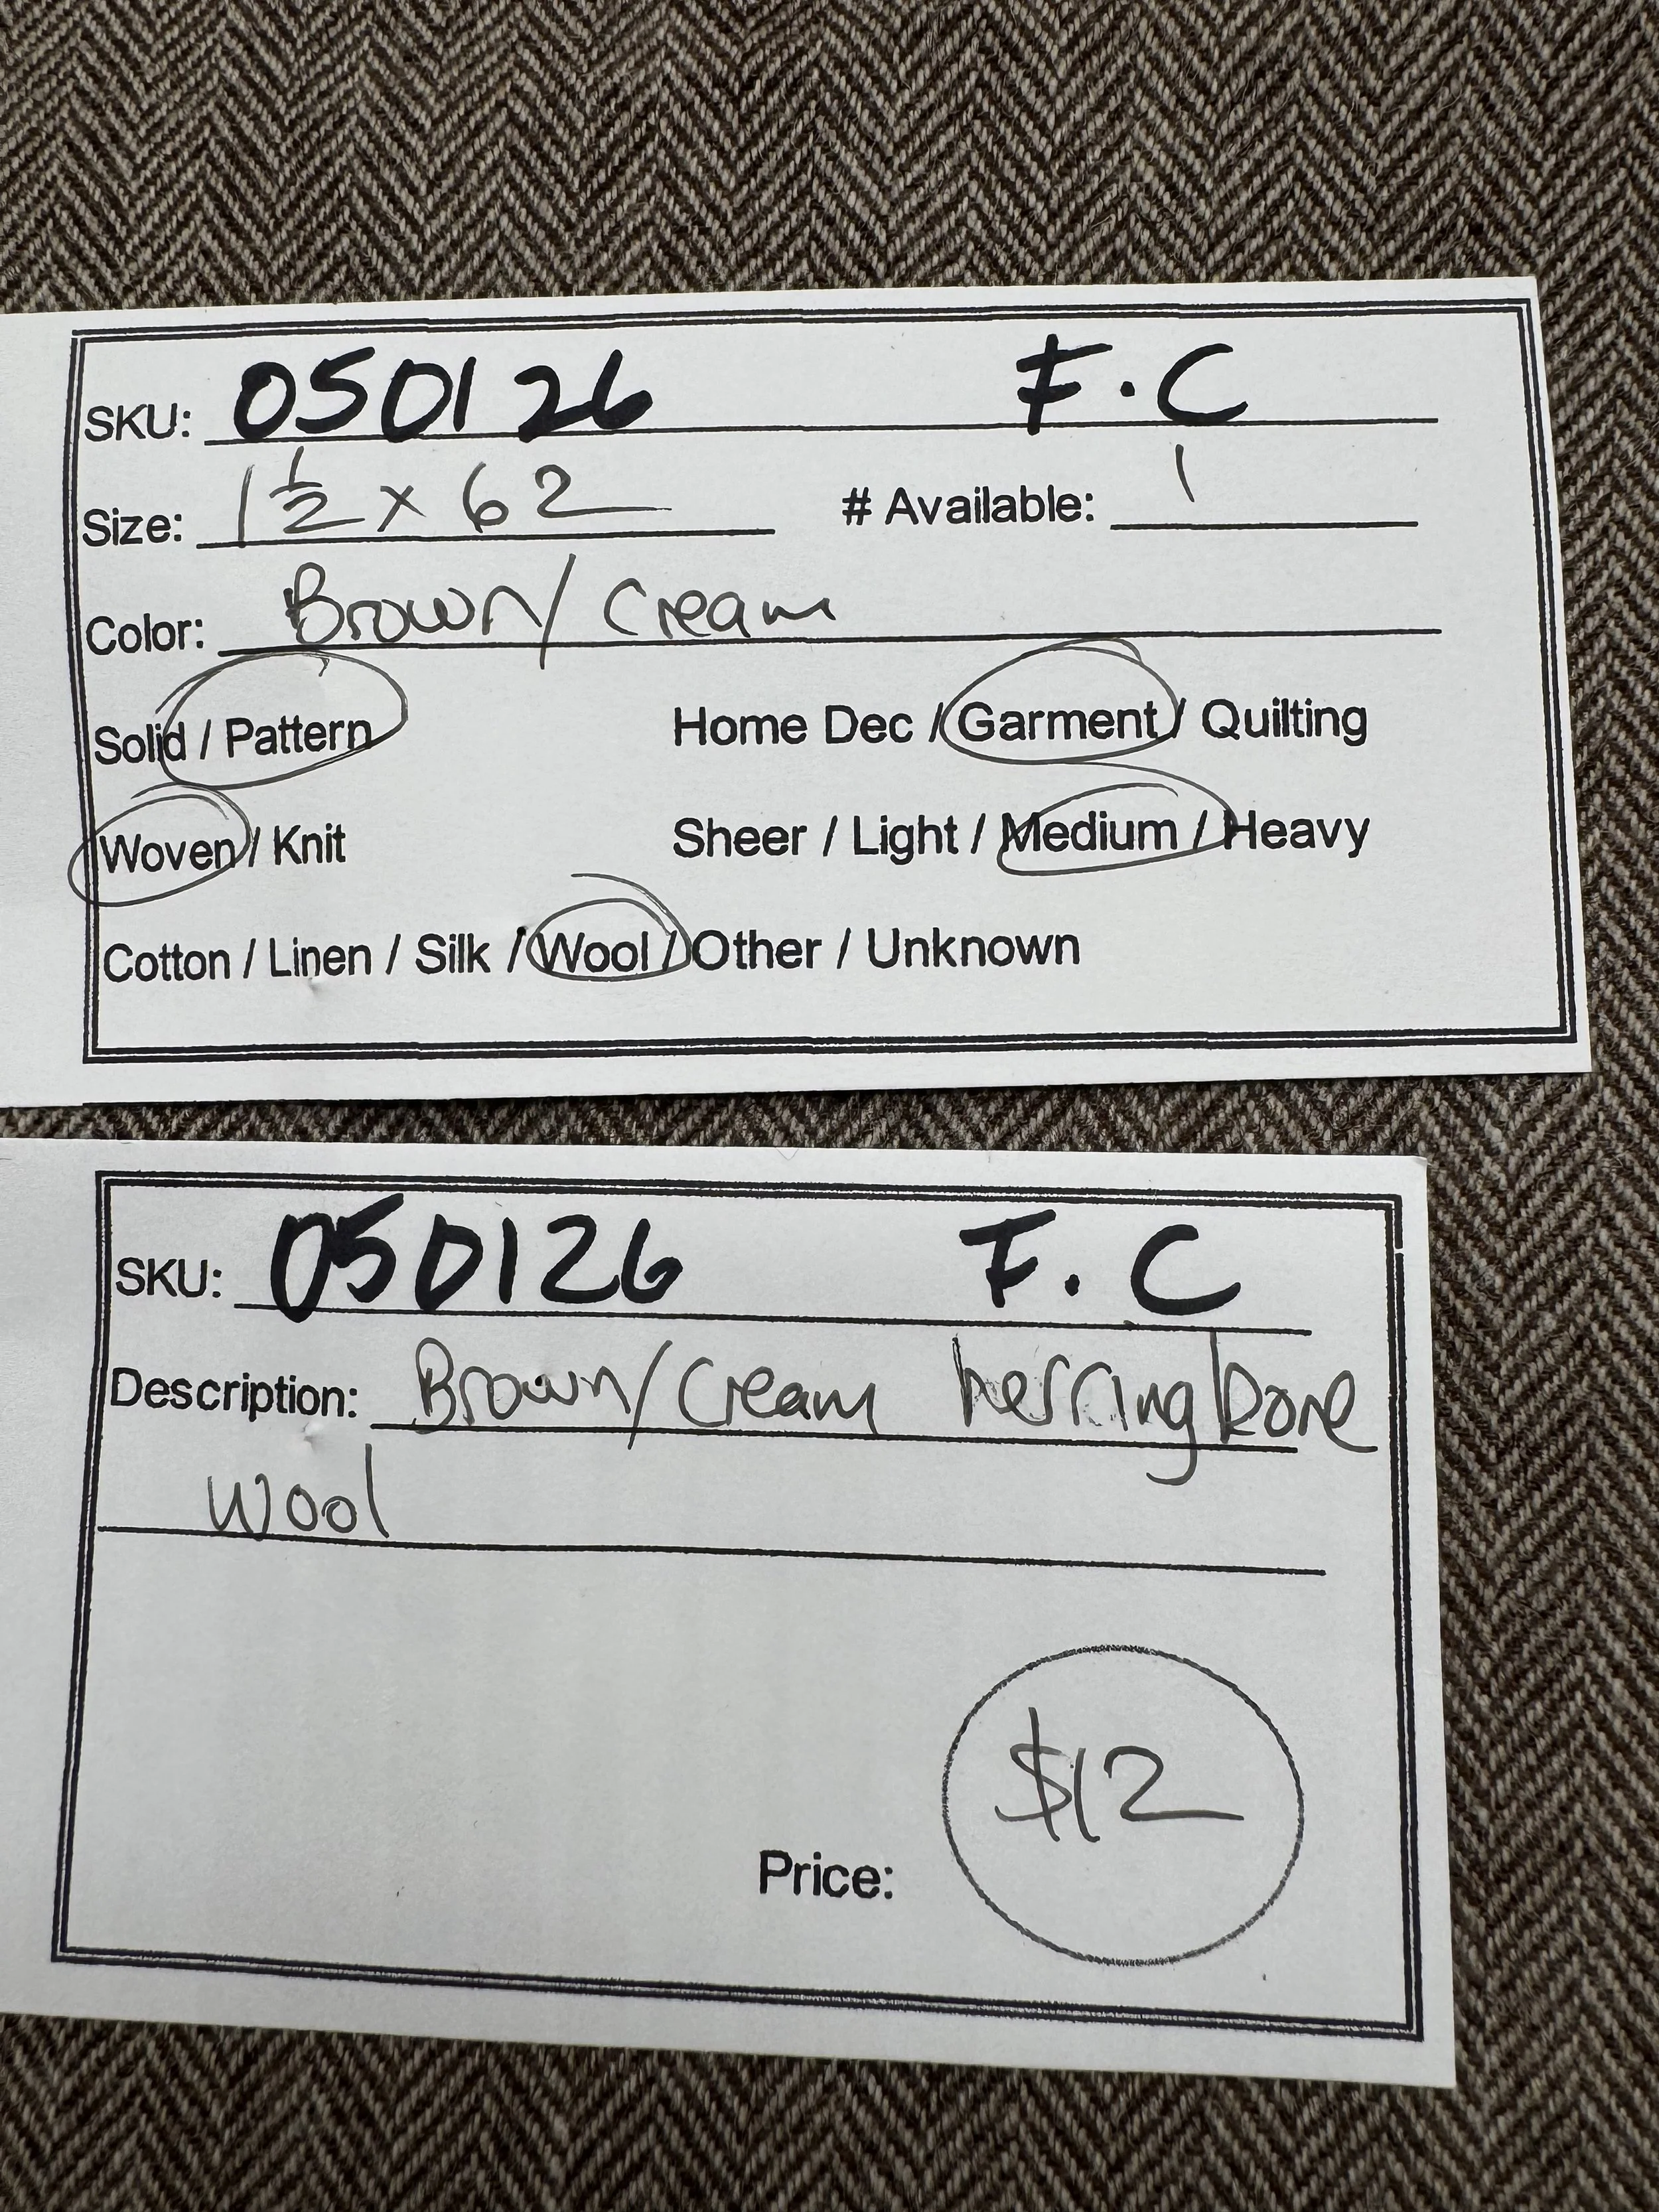 SKU: 050126 F.C
Size: 1 1/2 x 62 # Available: 1
Color: Brown/Cream
Solid / Pattern Home Dec / Garment / Quilting
Woven / Knit Sheer / Light / Medium / Heavy
Cotton / Linen / Silk / Wool / Other / Unknown
SKU: 050126 F.C
Description: Brown/Cream herringbone
wool
$12
Price: